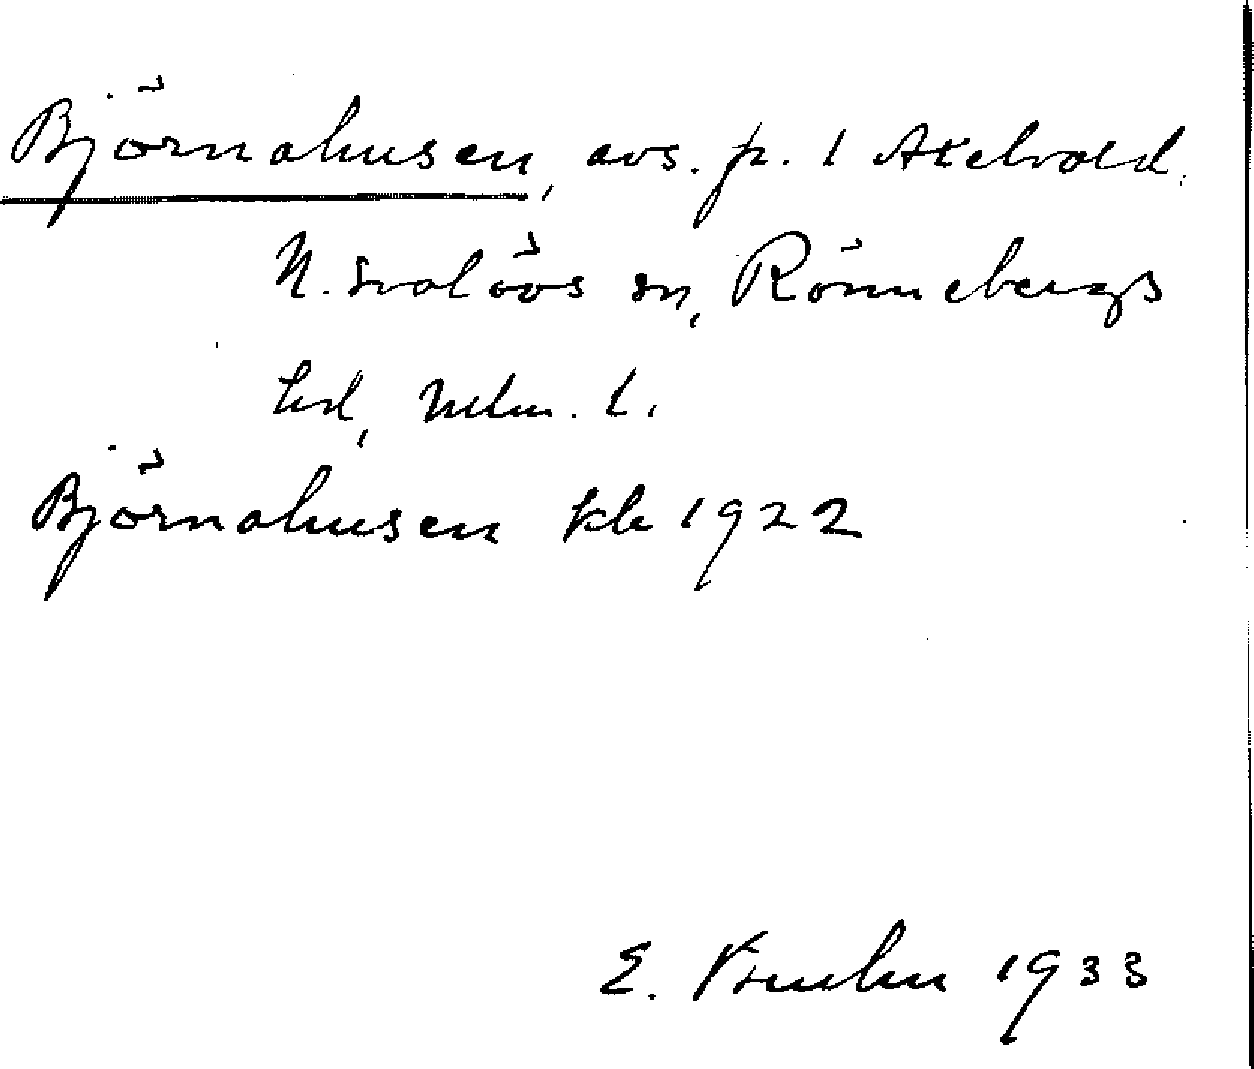 Björnahusen, avs. fr. 1 Axelvold.
N. Svalövs sn, Rönnebergs
hd, Mlm. l.
Björnahusen kb 1922
E. 1933